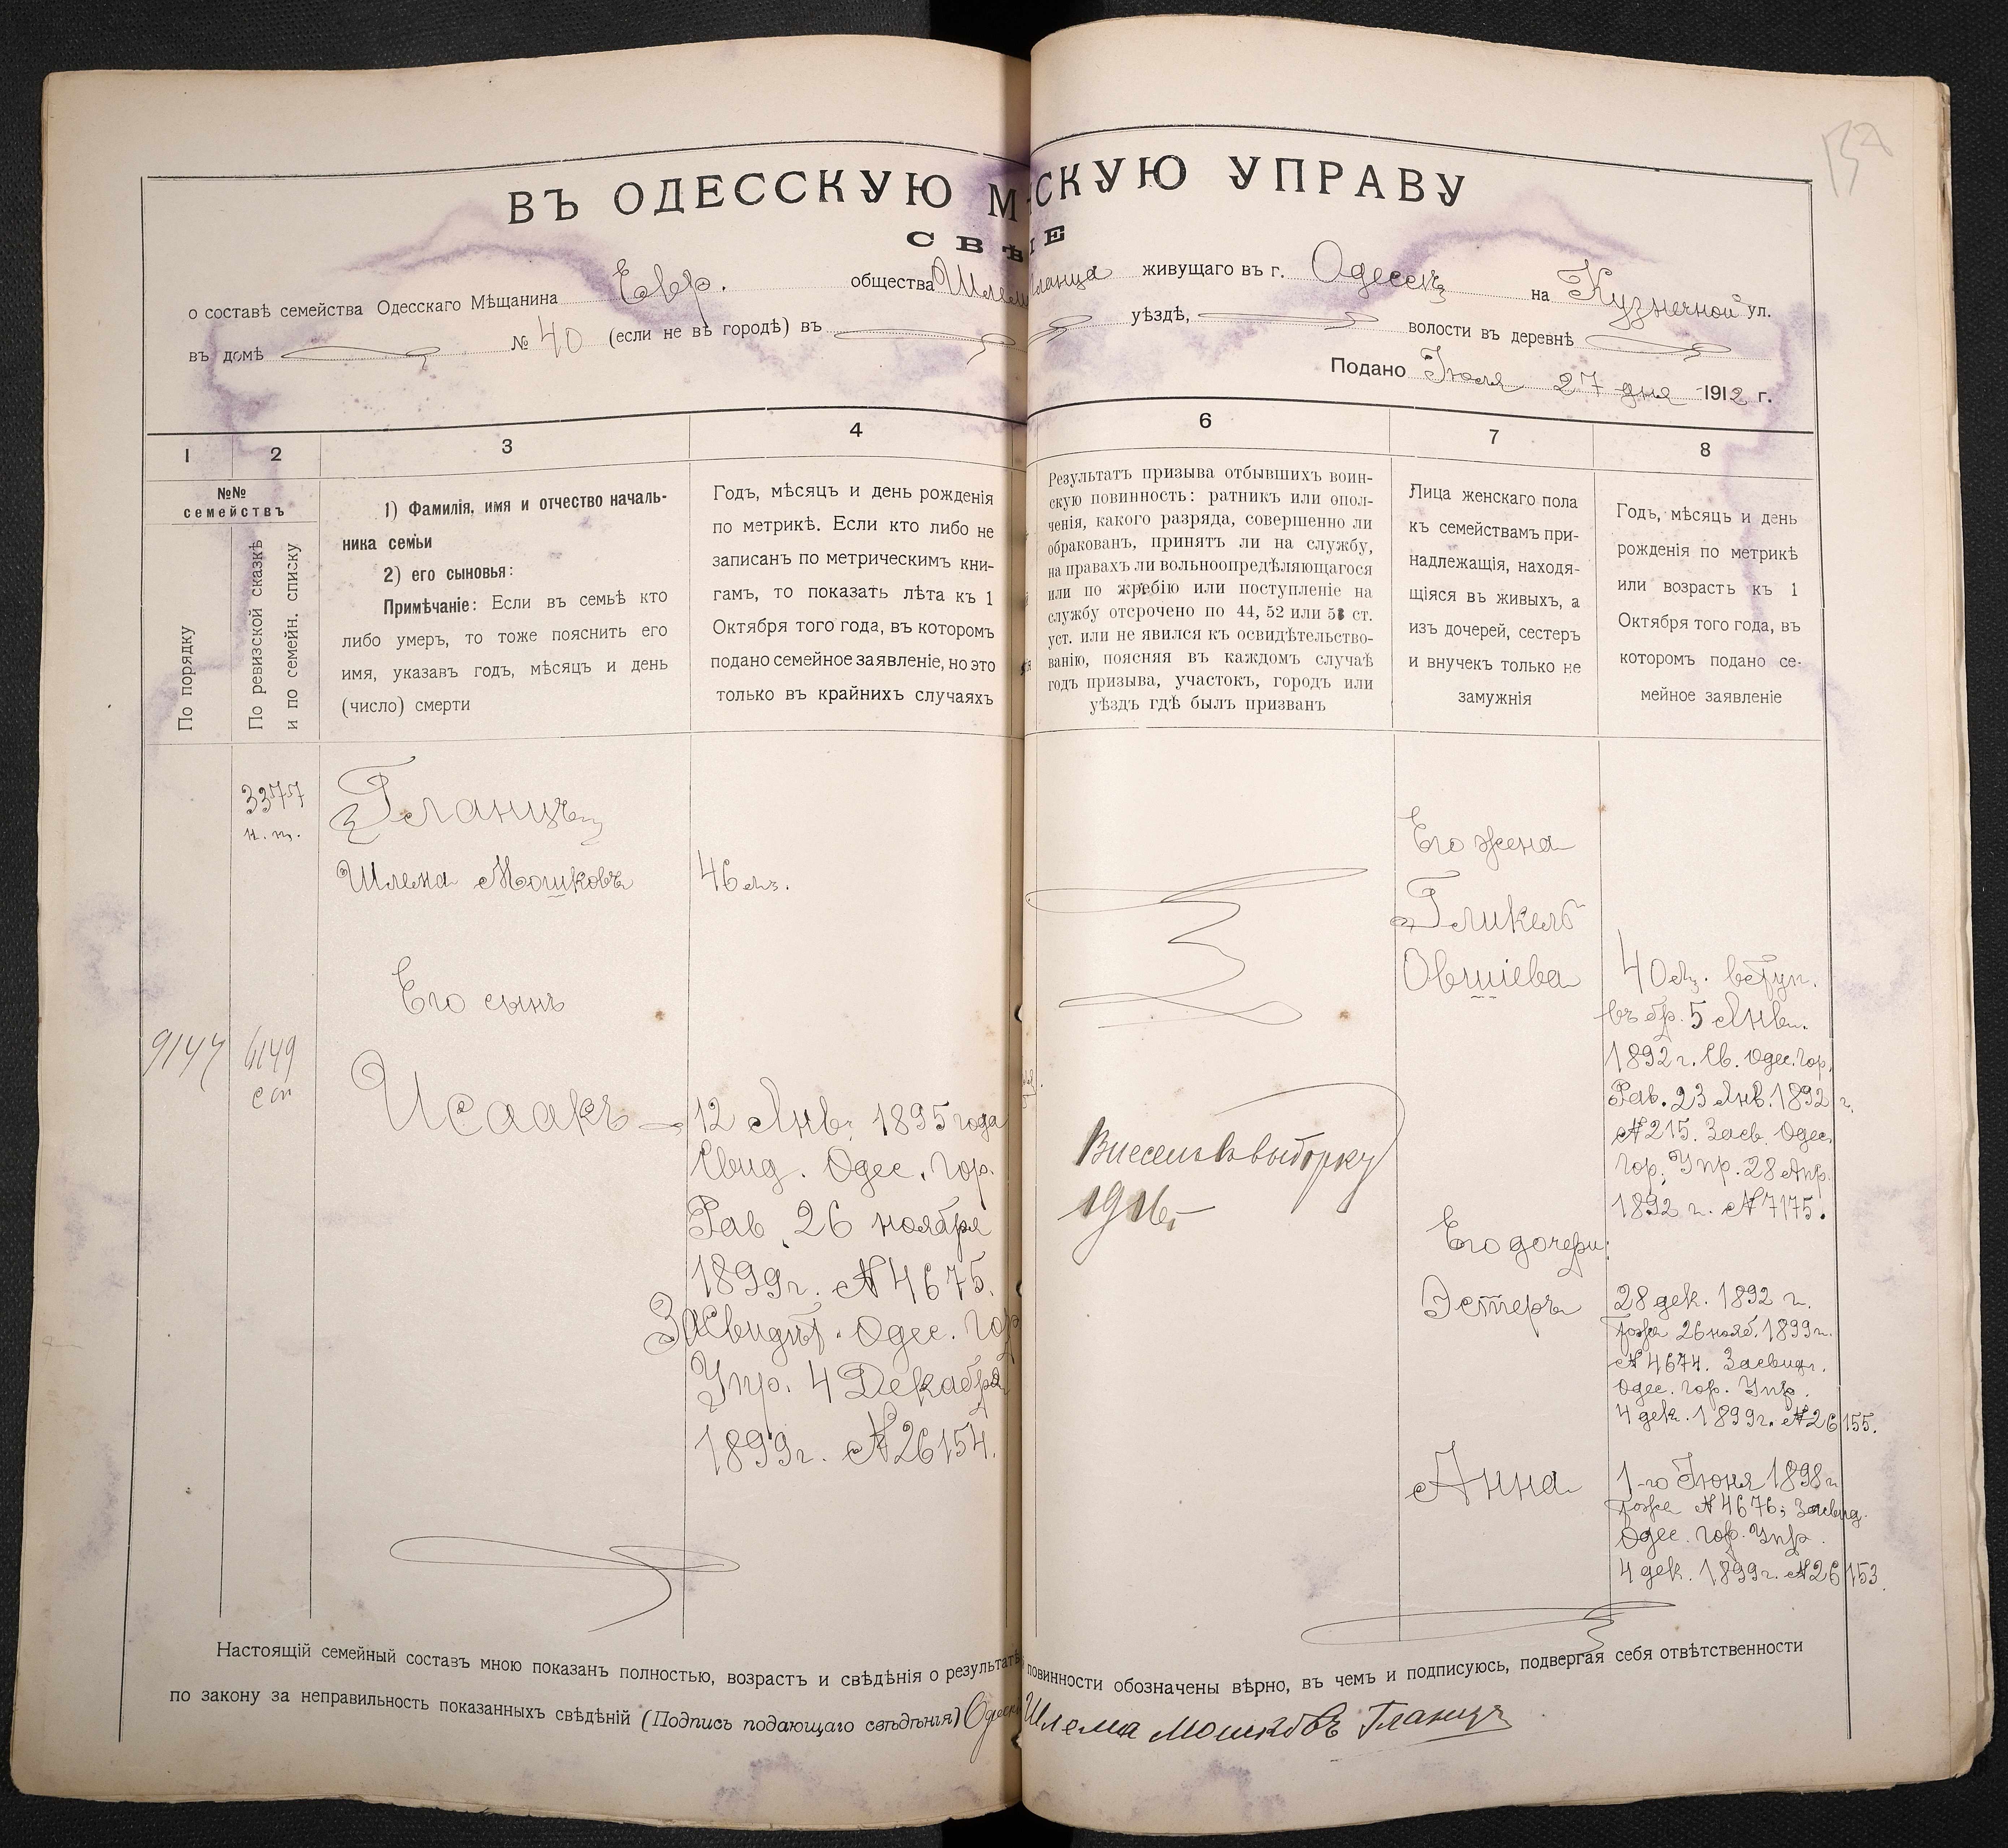 ВЪ ОДЕССКУЮ М СКУЮ УПРАВУ
СВѢ Е
о составѣ семейства Одесскаго Мѣщанина Евр. общества Шлем Гланца живущаго въ г. Одессѣ на Кузнечной ул.
въ домѣ № 40 (если не въ городѣ) въ уѣздѣ, волости въ деревнѣ
Подано Іюля 27 дня 1912 г.
1
2
3
4
6
7
8
№№
семействъ
По порядку
По ревизской сказкѣ
и по семейн. списку
1) Фамилія, имя и отчество началь-
ника семьи
2) его сыновья:
Примѣчаніе: Если въ семьѣ кто
либо умеръ, то тоже пояснить его
имя, указавъ годъ, мѣсяцъ и день
(число) смерти
Годъ, мѣсяцъ и день рожденія
по метрикѣ. Если кто либо не
записанъ по метрическимъ кни-
гамъ, то показать лѣта къ 1
Октября того года, въ которомъ
подано семейное заявленіе, но это
только въ крайнихъ случаяхъ
Результатъ призыва отбывшихъ воин-
скую повинность: ратникъ или опол-
ченія, какого разряда, совершенно ли
обракованъ, принятъ ли на службу,
на правахъ ли вольноопредѣляющагося
или по жребію или поступленіе на
службу отсрочено по 44, 52 или 53 ст.
уст. или не явился къ освидѣтельство-
ванію, поясняя въ каждомъ случаѣ
годъ призыва, участокъ, городъ или
уѣздъ гдѣ былъ призванъ
Лица женскаго пола
къ семействамъ при-
надлежащія, находя-
щіяся въ живыхъ, а
изъ дочерей, сестеръ
и внучекъ только не
замужнія
Годъ, мѣсяцъ и день
рожденія по метрикѣ
или возрастъ къ 1
Октября того года, въ
которомъ подано се-
мейное заявленіе
3377
Гланцъ
Шлема Мошковъ
46 л.
Его сынъ
9147
6149
сп
Исаакъ
12 Янв. 1895 года
Свид. Одес. Гор.
Рав. 26 ноября
1899 г. № 4675.
Засвидѣт. Одес. Гор
Упр. 4 Декабря
1899 г. № 26154.
Внесенъ въ выборку
1916 г.
Его жена
Гликель
Овшіева
40 л. вступ.
въ бр. 5 Янв.
1892 г. Св. Одес. Гор.
Рав. 23 Янв. 1892 г.
№ 215. Засв. Одес.
Гор. Упр. 28 Апр.
1892 г. № 7175.
Его дочери:
Эстеръ
28 дек. 1892 г.
тоже 26 нояб. 1899 г.
№ 4674. Засвид.
Одес. Гор. Упр.
4 дек. 1899 г. № 26155.
Анна
1-го Іюня 1898 г
тоже № 4676; Засвид.
Одес. Гор. Упр.
4 дек. 1899 г. № 26153.
Настоящій семейный составъ мною показанъ полностью, возрастъ и свѣдѣнія о результатѣ повинности обозначены вѣрно, въ чемъ и подписуюсь, подвергая себя отвѣтственности
по закону за неправильность показанныхъ свѣдѣній (Подпись подающаго свѣдѣнія) Одесск Шлема Мошковъ Гланцъ